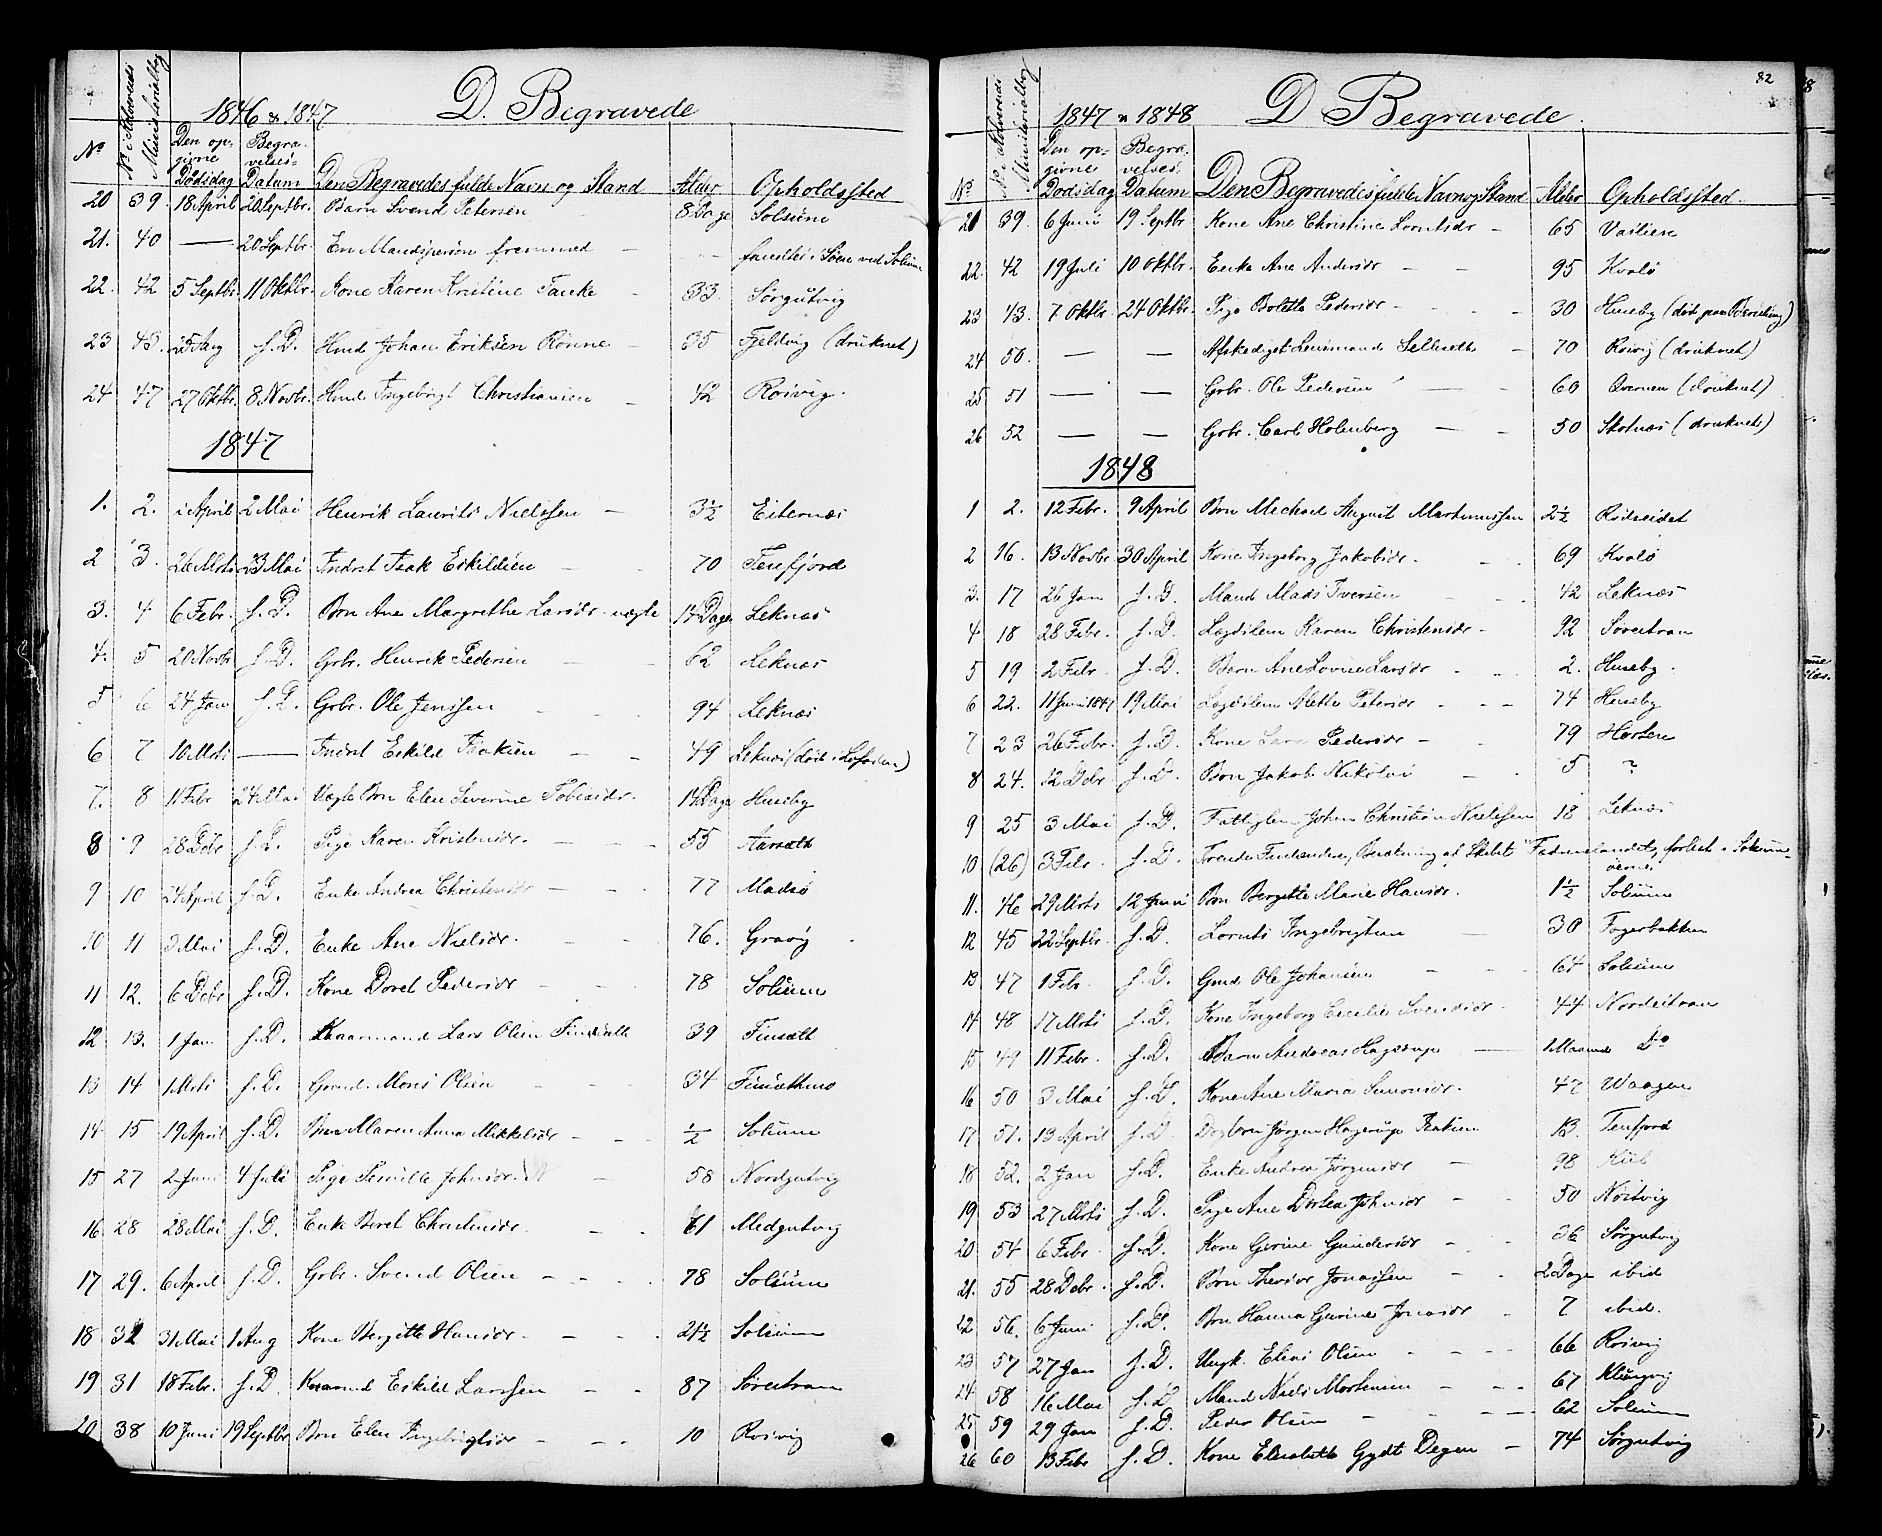 1846 & 1847 D. Begravede
No No i Hovedets Ministerialbog Den opgivne Dødsdag Begravelses-Datum Den Begravedes fulde Navn og Stand Alder Opholdssted
20 39 18 April 20 Septbr. Barn Svend Petersen 8 Dage Solsüm
21. 40 — 20 Septbr. En Mandsperson fremmed — funden i Søen ved Solsüm
22. 42 5 Septbr. 11 Oktbr. Kone Karen Kristine Tanke 33 Sørgutvig
23 43. 25 Aug s. D. Hmd Johan Eriksen Rønne 35 Fjeldvig (druknet)
24 47 27 Oktbr. 8 Novbr. Hmd Ingebrigt Christiansen 42 Rosvig.
1847
1. 2. 1 April 2 Mai Henrik Laurits Nielssen 3½ Eiternæs
2 3. 26 Mrts 23 Mai Indrst Isak Eskildsen 70 Terfjord
3. 4 6 Febr. s. D. Brn Ane Margrethe Larsdr. uægte 14 Dage Leknæs
4. 5 20 Novbr s. D. Grbr. Henrik Pedersen 62 Leknæs
5 6 24 Jan s. D. Grbr. Ole Jenssen 94 Leknæs
6 7 10 Mrts — Indrst Eskild Isaksen 49 Leknæs (død i Lofoten)
7. 8 11 Febr 24 Mai Uægte Brn Elen Severine Tobiasdr. 14 Dage Huseby
8 9 28 Debr s. D. Pige Karen Kristensdr. 55 Aarsæth
9 10 24 April s. D. Enke Andrea Christensdr 77 Madsø
10 11 3 Mai s. D. Enke Ane Nielsdr. 76. Gravig
11 12. 6 Debr s. D. Kone Doret Pedersdr 78 Solsüm
12 13. 1 Jan s. D. Kaarmand Lars Olsen Finsæth 39 Finsæth
13 14 1 Mrts s. D. Grmd. Mons Olsen 34 Finsæthnes
14. 15 19 April s. D. Brn Maren Anna Mikkelsdr ½ Solsüm
15 27 2 Juni 4 Juli Pige Pernille Johnsdr. 58 Nordgutvig
16 28 28 Mai s. D. Enke Beret Christensdr. 61 Medgutvig
17 29. 6 April s. D. Grbr. Svend Olsen 78 Solsüm
18 32 31 Mai 1 Aug Kone Bergitte Hansdr. 21½ Solsüm
19 31 18 Febr. s. D. Kaarmd Eskild Larssen 87 Sørestran
20 38 10 Juni 19 Septbr Brn Elen Ingebrigtsdr 10 Rosvig
82
1847 & 1848 D Begravede.
No. No i Hovedets Ministerialbog Den opgivne Dødsdag Begravelses-Datum Den Begravedes fulde Navn og Stand Alder Opholdssted.
21 39. 6 Juni 19 Septbr Kone Ane Christine Lorntsdr 65 Vasliere
22. 42 19 Juli 10 Oktbr. Enke Ane Andersdr 95 Kvalø
23 43. 7 Oktbr 24 Oktbr. Pige Boletta Pedersdr 30 Huseby
24 50. — — Afskediget Lensmand Selliseth 70 Rosvig (druknet)
25 51 — — Grbr. Ole Pedersen 60 Qvernen (druknet)
26 52 — — Grbr. Carl Holmberg 50 Skotnæs (druknet)
1848
1 2. 12 Febr. 9 April Brn Mechael August Martinussen 2½ Rødseidet
2 16. 13 Novbr 30 April Kone Ingeborg Jakobsdr. 69 Kvalø
3. 17 26 Jan s. D. Mand Mads Iversen 42 Leknæs
4 18 28 Febr. s. D. Lægdslem Karen Christensdr 92 Sørestran
5 19 2 Febr. s. D. Barn Ane Lovise Larsdr 2. Huseby.
6 22. 11 Juni 1847 19 Mai Lægdslem Mette Petersdr 74 Huseby
7 23 26 Febr. s. D. Kone Lava Pedersdr 79 Horsen
8 24. 12 Debr s. D. Brn Jakob Nikolai 5 ?
9 25 3 Mai s. D. Fattiglem Johan Christian Nielssen 18 Leknæs
10 (26) 3 Febr. s. D. Trende Finlændere, Besætning af Skibet Fædrenelandet, forlist i Solsumøerne
11. 46 29 Mrts 12 Juni Brn Bergitte Marie Hansdr. 1½ Solsüm
12 45 22 Septbr. s. D. Lornts Ingebrigtsen 30 Fagerbakken
13 47 1 Febr. s. D. Gmd Ole Johansen 64 Solsüm
14 48 17 Mrts s. D. Kone Ingeborg Cecilie Svendsdr 44 Nordestran
15 49 11 Febr. s. D. Barn Andreas Hagerup — 1 Maaned Do
16 50 3 Mai s. D. Kone Ane Maria Simonsdr. 47 Waagen
17 51. 13 April s. D. Døgbrn Jørgen Hagerup Isaksen 13. Terfjord
18 52. 2 Jan s. D. Enke Andrea Jørgensdr 98 Kiil
19 53 27 Mrts s. D. Pige Ane Dorthea Johnsdr 50 Nøstvig
20 54 6 Febr. s. D. Kone Gurine Gundersdr 36 Sørgutvig
21. 55 28 Debr s. D. Brn Thersdr Jonassen 2 Dage ibid
22 56. 6 Juni s. D. Brn Hanna Gurine Jonasdr 7 ibid.
23 57 27 Jan s. D. Ungk. Elias Olsen 66 Rosvig
24. 58 16 Mai s. D. Mand Niels Mortensen 67 Klungvig
25 59 29 Jan s. D. Peder Olsen 62 Solsüm
26 60 13 Febr s. D. Kone Elisabeth Gydt Degen 74 Sørgutvig